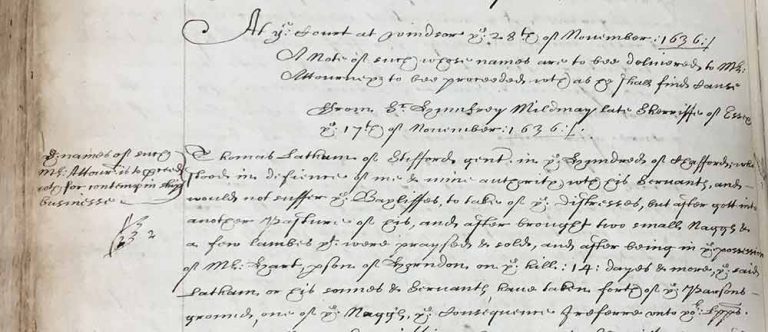 At yͤ Court at windsor yͤ 28ᵗʰ of November: 1636:/
A Note of such whose names are to bee delivered to Mʳ:
Attourney to bee proceeded wᵗʰ as hee shall find cause
From Sʳ Humfrey Mildmay late Sherriffe of Essex
yͤ 17ᵗʰ of November: 1636:/.
yͤ names of such
Mʳ Attour: is to proceed
wᵗʰ for contempt in this
businesse
Thomas Latham of Stifford, gent. in yͤ Hundred of Chafford, who
stood in defience of me & mine authority wᵗʰ his Servants, and
would not suffer yͤ Bayliffes, to take of yͤ distresses, but after gott into
another Pasture of his, and after brought two small Naggs &
a few lambes yᵗ: were praysed & sold, and after being in yͤ possession
of Mʳ: Hart, pson of Horndon on yͤ hill: 14: dayes & more, yͤ said
Latham or his sonnes & Servants, have taken forth of yͤ Parsons
grounds, one of yͤ Naggs, yͤ Consequence I referre unto yoʳ: Lpps.